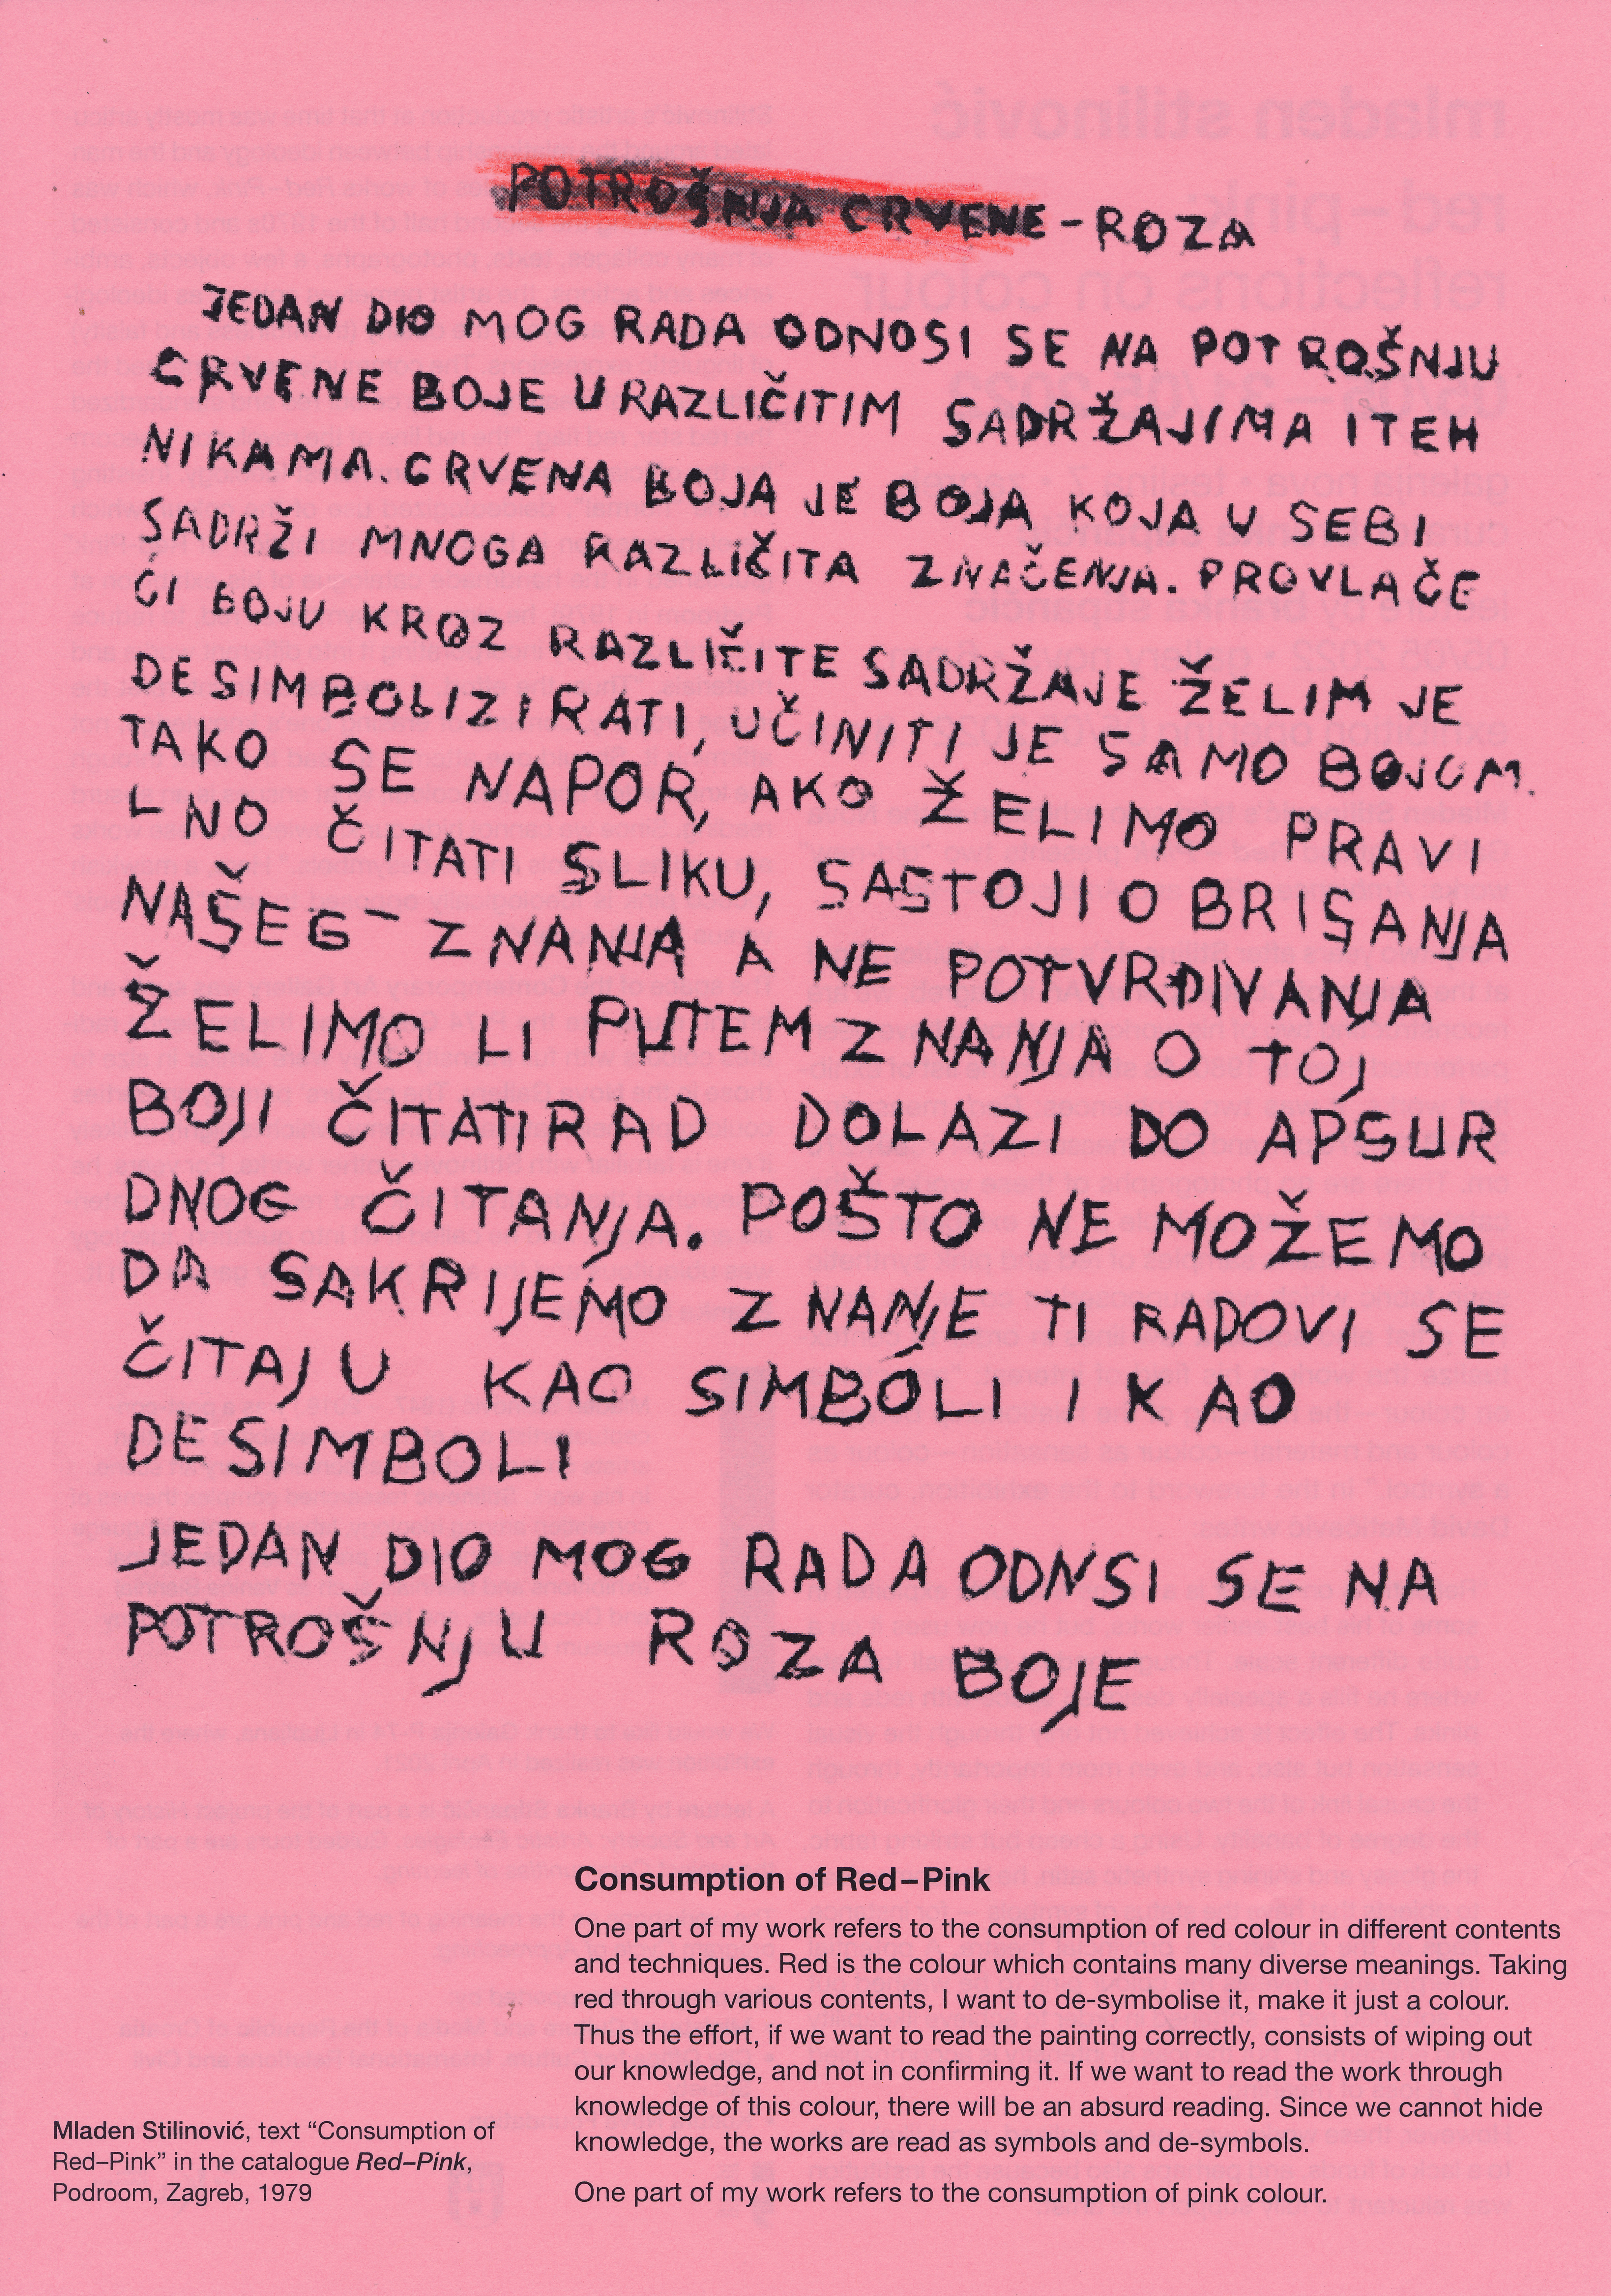 POTROŠNJA CRVENE - ROZA
JEDAN DIO MOG RADA ODNOSI SE NA POTROŠNJU
CRVENE BOJE U RAZLIČITIM SADRŽAJIMA I TEH
NIKAMA. CRVENA BOJA JE BOJA KOJA U SEBI
SADRŽI MNOGA RAZLIČITA ZNAČENJA. PROVLAČE
ĆI BOJU KROZ RAZLIČITE SADRŽAJE ŽELIM JE
DESIMBOLIZIRATI, UČINITI JE SAMO BOJOM.
TAKO SE NAPOR, AKO ŽELIMO PRAVI
LNO ČITATI SLIKU, SASTOJI O BRISANJA
NAŠEG ZNANJA A NE POTVRĐIVANJA
ŽELIMO LI PUTEM ZNANJA O TOJ
BOJI ČITATI RAD DOLAZI DO APSUR
DNOG ČITANJA. POŠTO NE MOŽEMO
DA SAKRIJEMO ZNANJE TI RADOVI SE
ČITAJU KAO SIMBOLI I KAO
DESIMBOLI
JEDAN DIO MOG RADA ODNSI SE NA
POTROŠNJU ROZA BOJE
Consumption of Red–Pink
One part of my work refers to the consumption of red colour in different contents
and techniques. Red is the colour which contains many diverse meanings. Taking
red through various contents, I want to de-symbolise it, make it just a colour.
Thus the effort, if we want to read the painting correctly, consists of wiping out
our knowledge, and not in confirming it. If we want to read the work through
knowledge of this colour, there will be an absurd reading. Since we cannot hide
knowledge, the works are read as symbols and de-symbols.
One part of my work refers to the consumption of pink colour.
Mladen Stilinović, text “Consumption of
Red–Pink” in the catalogue Red–Pink,
Podroom, Zagreb, 1979